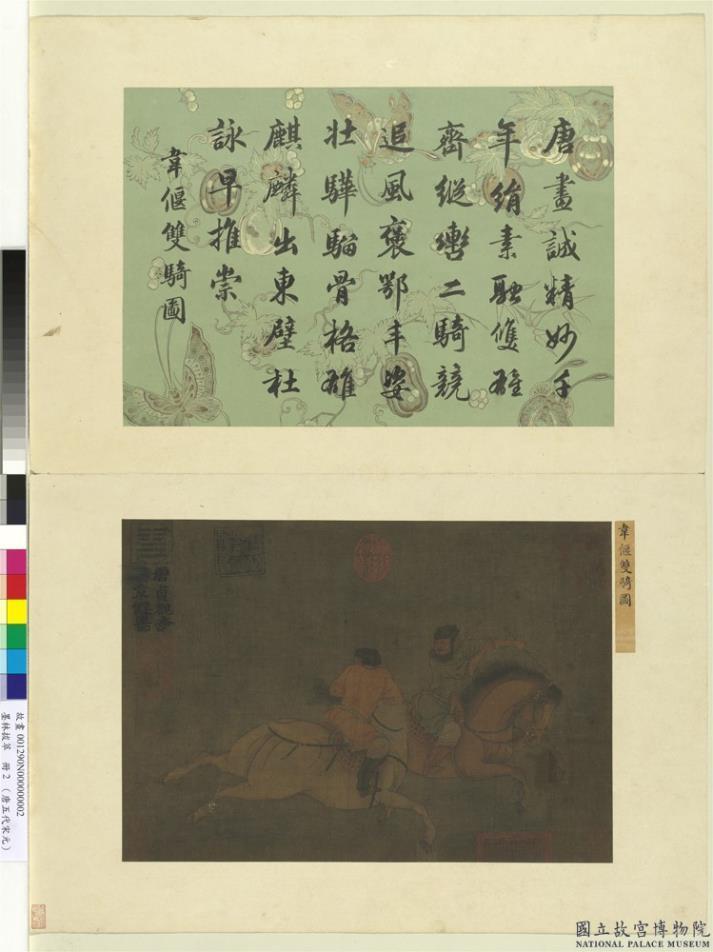 唐畫誠精妙千
年絹素融雙雄
齊縱轡二騎競
追風褒鄂丰姿
壯驊騮骨格雄
麒麟出東壁杜
詠早推崇
韋偃雙騎圖
韋偃雙騎圖
故畫 001290N000000002
墨林拔萃 冊 2 （唐五代宋元）
國立故宮博物院
NATIONAL PALACE MUSEUM